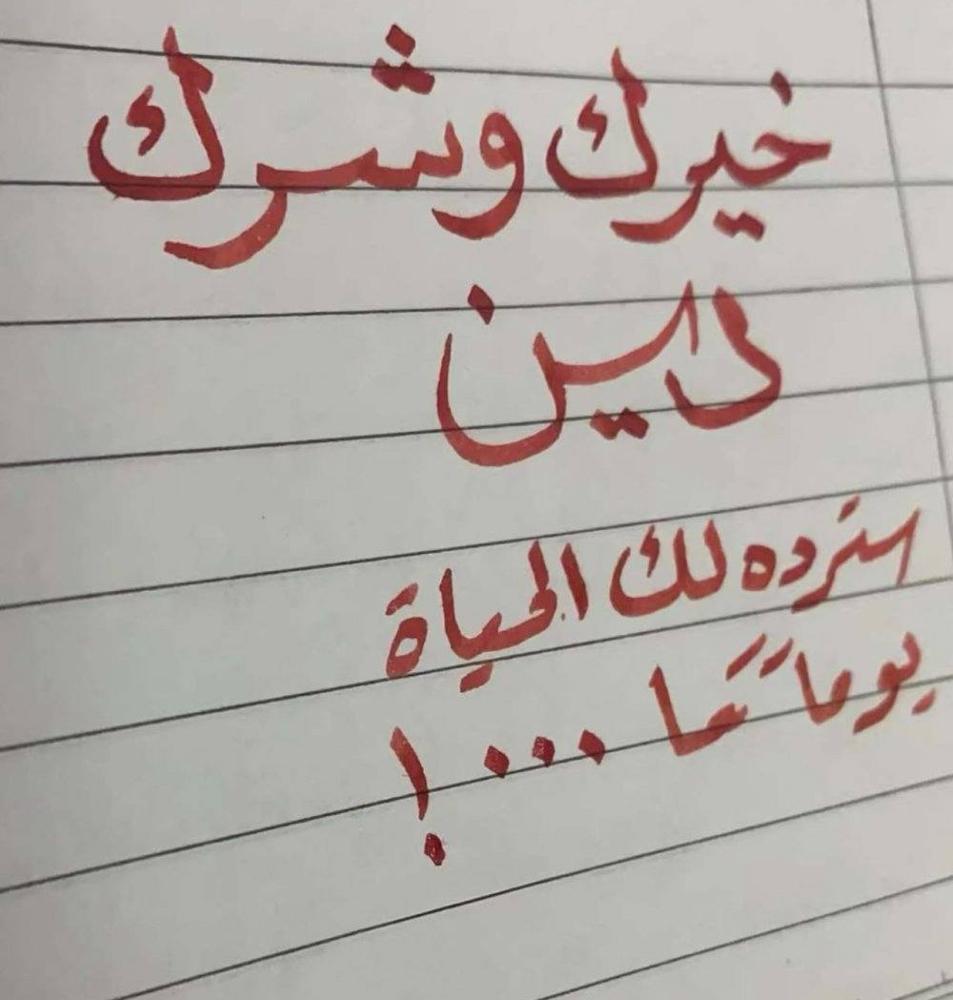 خيرك وشرك
دين
سترده لك الحياة
يوماً ما ...!